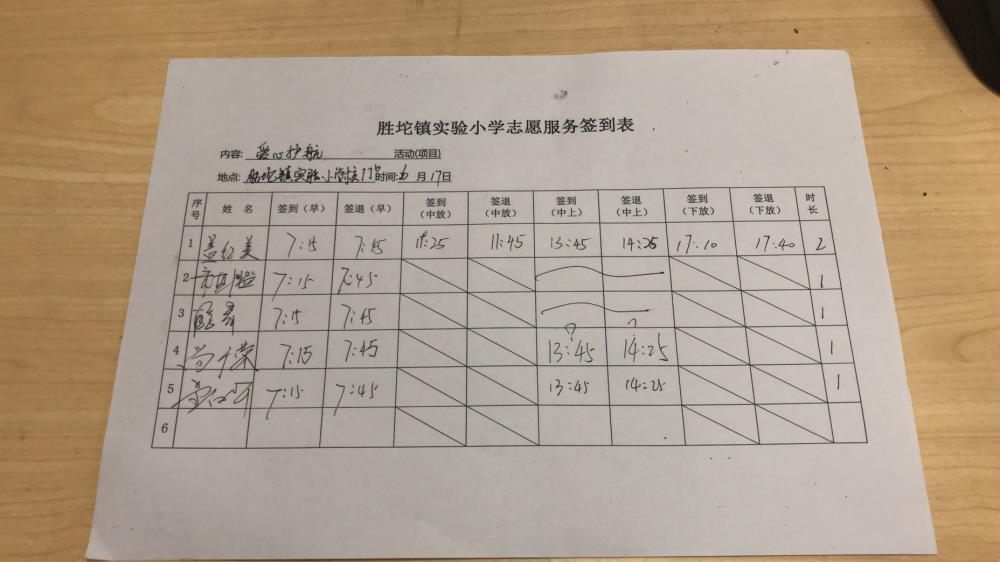 胜坨镇实验小学志愿服务签到表
内容: 爱心护航 活动(项目)
地点: 胜坨镇实验小学校门口 时间: 6 月 17 日
序号 姓 名 签到（早） 签退（早） 签到（中放） 签退（中放） 签到（中上） 签退（中上） 签到（下放） 签退（下放） 时长
1 盖红美 7:15 7:45 11:25 11:45 13:45 14:25 17:10 17:40 2
2 7:15 7:45 1
3 7:15 7:45 1
4 7:15 7:45 13:45 14:25 1
5 7:15 7:45 13:45 14:25 1
6